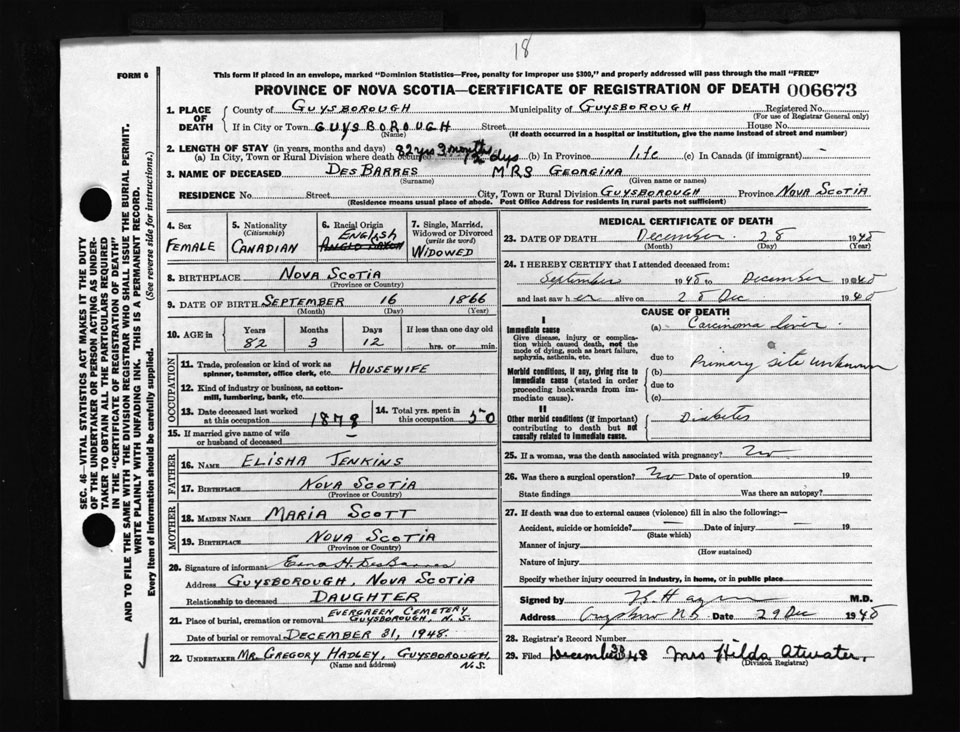 18
FORM 6
This form if placed in an envelope, marked "Dominion Statistics—Free, penalty for improper use $300," and properly addressed will pass through the mail "FREE"
PROVINCE OF NOVA SCOTIA—CERTIFICATE OF REGISTRATION OF DEATH 006673
SEC. 46—VITAL STATISTICS ACT MAKES IT THE DUTY
OF THE UNDERTAKER OR PERSON ACTING AS UNDER-
TAKER TO OBTAIN ALL THE PARTICULARS REQUIRED
IN THE "CERTIFICATE OF REGISTRATION OF DEATH"
AND TO FILE THE SAME WITH THE DIVISION REGISTRAR WHO SHALL ISSUE THE BURIAL PERMIT.
WRITE PLAINLY WITH UNFADING INK. THIS IS A PERMANENT RECORD.
Every item of information should be carefully supplied. (See reverse side for instructions.)
1. PLACE OF DEATH
County of GUYSBOROUGH Municipality of GUYSBOROUGH Registered No.
(For use of Registrar General only)
If in City or Town GUYSBOROUGH Street House No.
(Name) (If death occurred in a hospital or institution, give the name instead of street and number)
2. LENGTH OF STAY (in years, months and days)
(a) In City, Town or Rural Division where death occurred 82 yrs 3 months 12 dys (b) In Province life (c) In Canada (if immigrant) –
3. NAME OF DECEASED DESBARRES MRS GEORGINA
(Surname) (Given name or names)
RESIDENCE No. Street City, Town or Rural Division GUYSBOROUGH Province NOVA SCOTIA
(Residence means usual place of abode. Post Office Address for residents in rural parts not sufficient)
4. Sex
FEMALE
5. Nationality
(Citizenship)
CANADIAN
6. Racial Origin
ENGLISH
ANGLO SAXON
7. Single, Married,
Widowed or Divorced
(write the word)
WIDOWED
8. BIRTHPLACE NOVA SCOTIA
(Province or Country)
9. DATE OF BIRTH SEPTEMBER 16 1866
(Month) (Day) (Year)
10. AGE in Years Months Days If less than one day old
82 3 12 hrs. or min.
OCCUPATION
11. Trade, profession or kind of work as
spinner, teamster, office clerk, etc. HOUSEWIFE
12. Kind of industry or business, as cotton-
mill, lumbering, bank, etc.
13. Date deceased last worked
at this occupation 1878
14. Total yrs. spent in
this occupation 50
15. If married give name of wife
or husband of deceased
FATHER
16. NAME ELISHA JENKINS
17. BIRTHPLACE NOVA SCOTIA
(Province or Country)
MOTHER
18. MAIDEN NAME MARIA SCOTT
19. BIRTHPLACE NOVA SCOTIA
(Province or Country)
20. Signature of informant H. DesBarres
Address GUYSBOROUGH, NOVA SCOTIA
Relationship to deceased DAUGHTER
21. Place of burial, cremation or removal EVERGREEN CEMETERY
GUYSBOROUGH, N.S.
Date of burial or removal DECEMBER 31, 1948.
22. UNDERTAKER MR. GREGORY HADLEY, GUYSBOROUGH
(Name and address) N.S.
MEDICAL CERTIFICATE OF DEATH
23. DATE OF DEATH December 28 1948
(Month) (Day) (Year)
24. I HEREBY CERTIFY that I attended deceased from:
September 1948 to December 1948
and last saw her alive on 28 Dec 1948
CAUSE OF DEATH
I
Immediate cause
Give disease, injury or complica-
tion which caused death, not the
mode of dying, such as heart failure,
asphyxia, asthenia, etc.
(a) Carcinoma liver.
due to
Morbid conditions, if any, giving rise to
immediate cause (stated in order
proceeding backwards from im-
mediate cause).
(b) Primary site unknown
due to
(c)
II
Other morbid conditions (if important)
contributing to death but not
causally related to immediate cause.
Diabetes
25. If a woman, was the death associated with pregnancy? No
26. Was there a surgical operation? No Date of operation 19
State findings Was there an autopsy?
27. If death was due to external causes (violence) fill in also the following:—
Accident, suicide or homicide? – Date of injury 19
(State which)
Manner of injury
(How sustained)
Nature of injury
Specify whether injury occurred in industry, in home, or in public place
Signed by M.D.
Address N.S. Date 29 Dec 1948
28. Registrar's Record Number
29. Filed December 48 Mrs Hilda Atwater.
(Division Registrar)